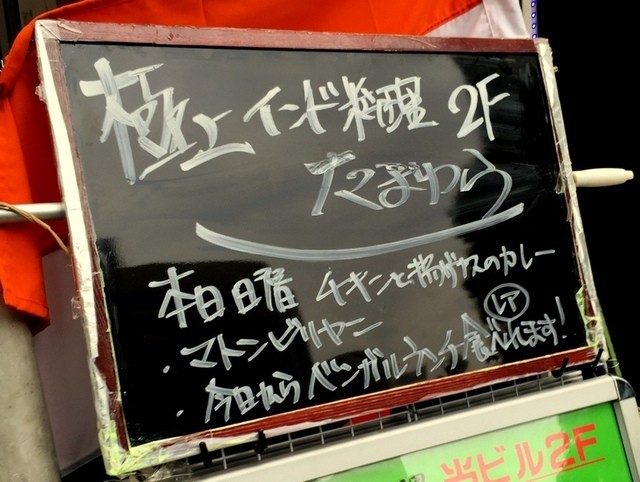 極上インド料理 2F
たまわら
本日日曜 チキンと揚げナスのカレー
・マトンビリヤニー
レア
・今日からベンガルランチ食べれます!
当ビル2F